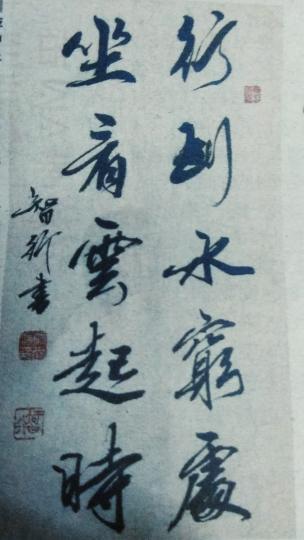 行到水窮處
坐看雲起時
智衡書